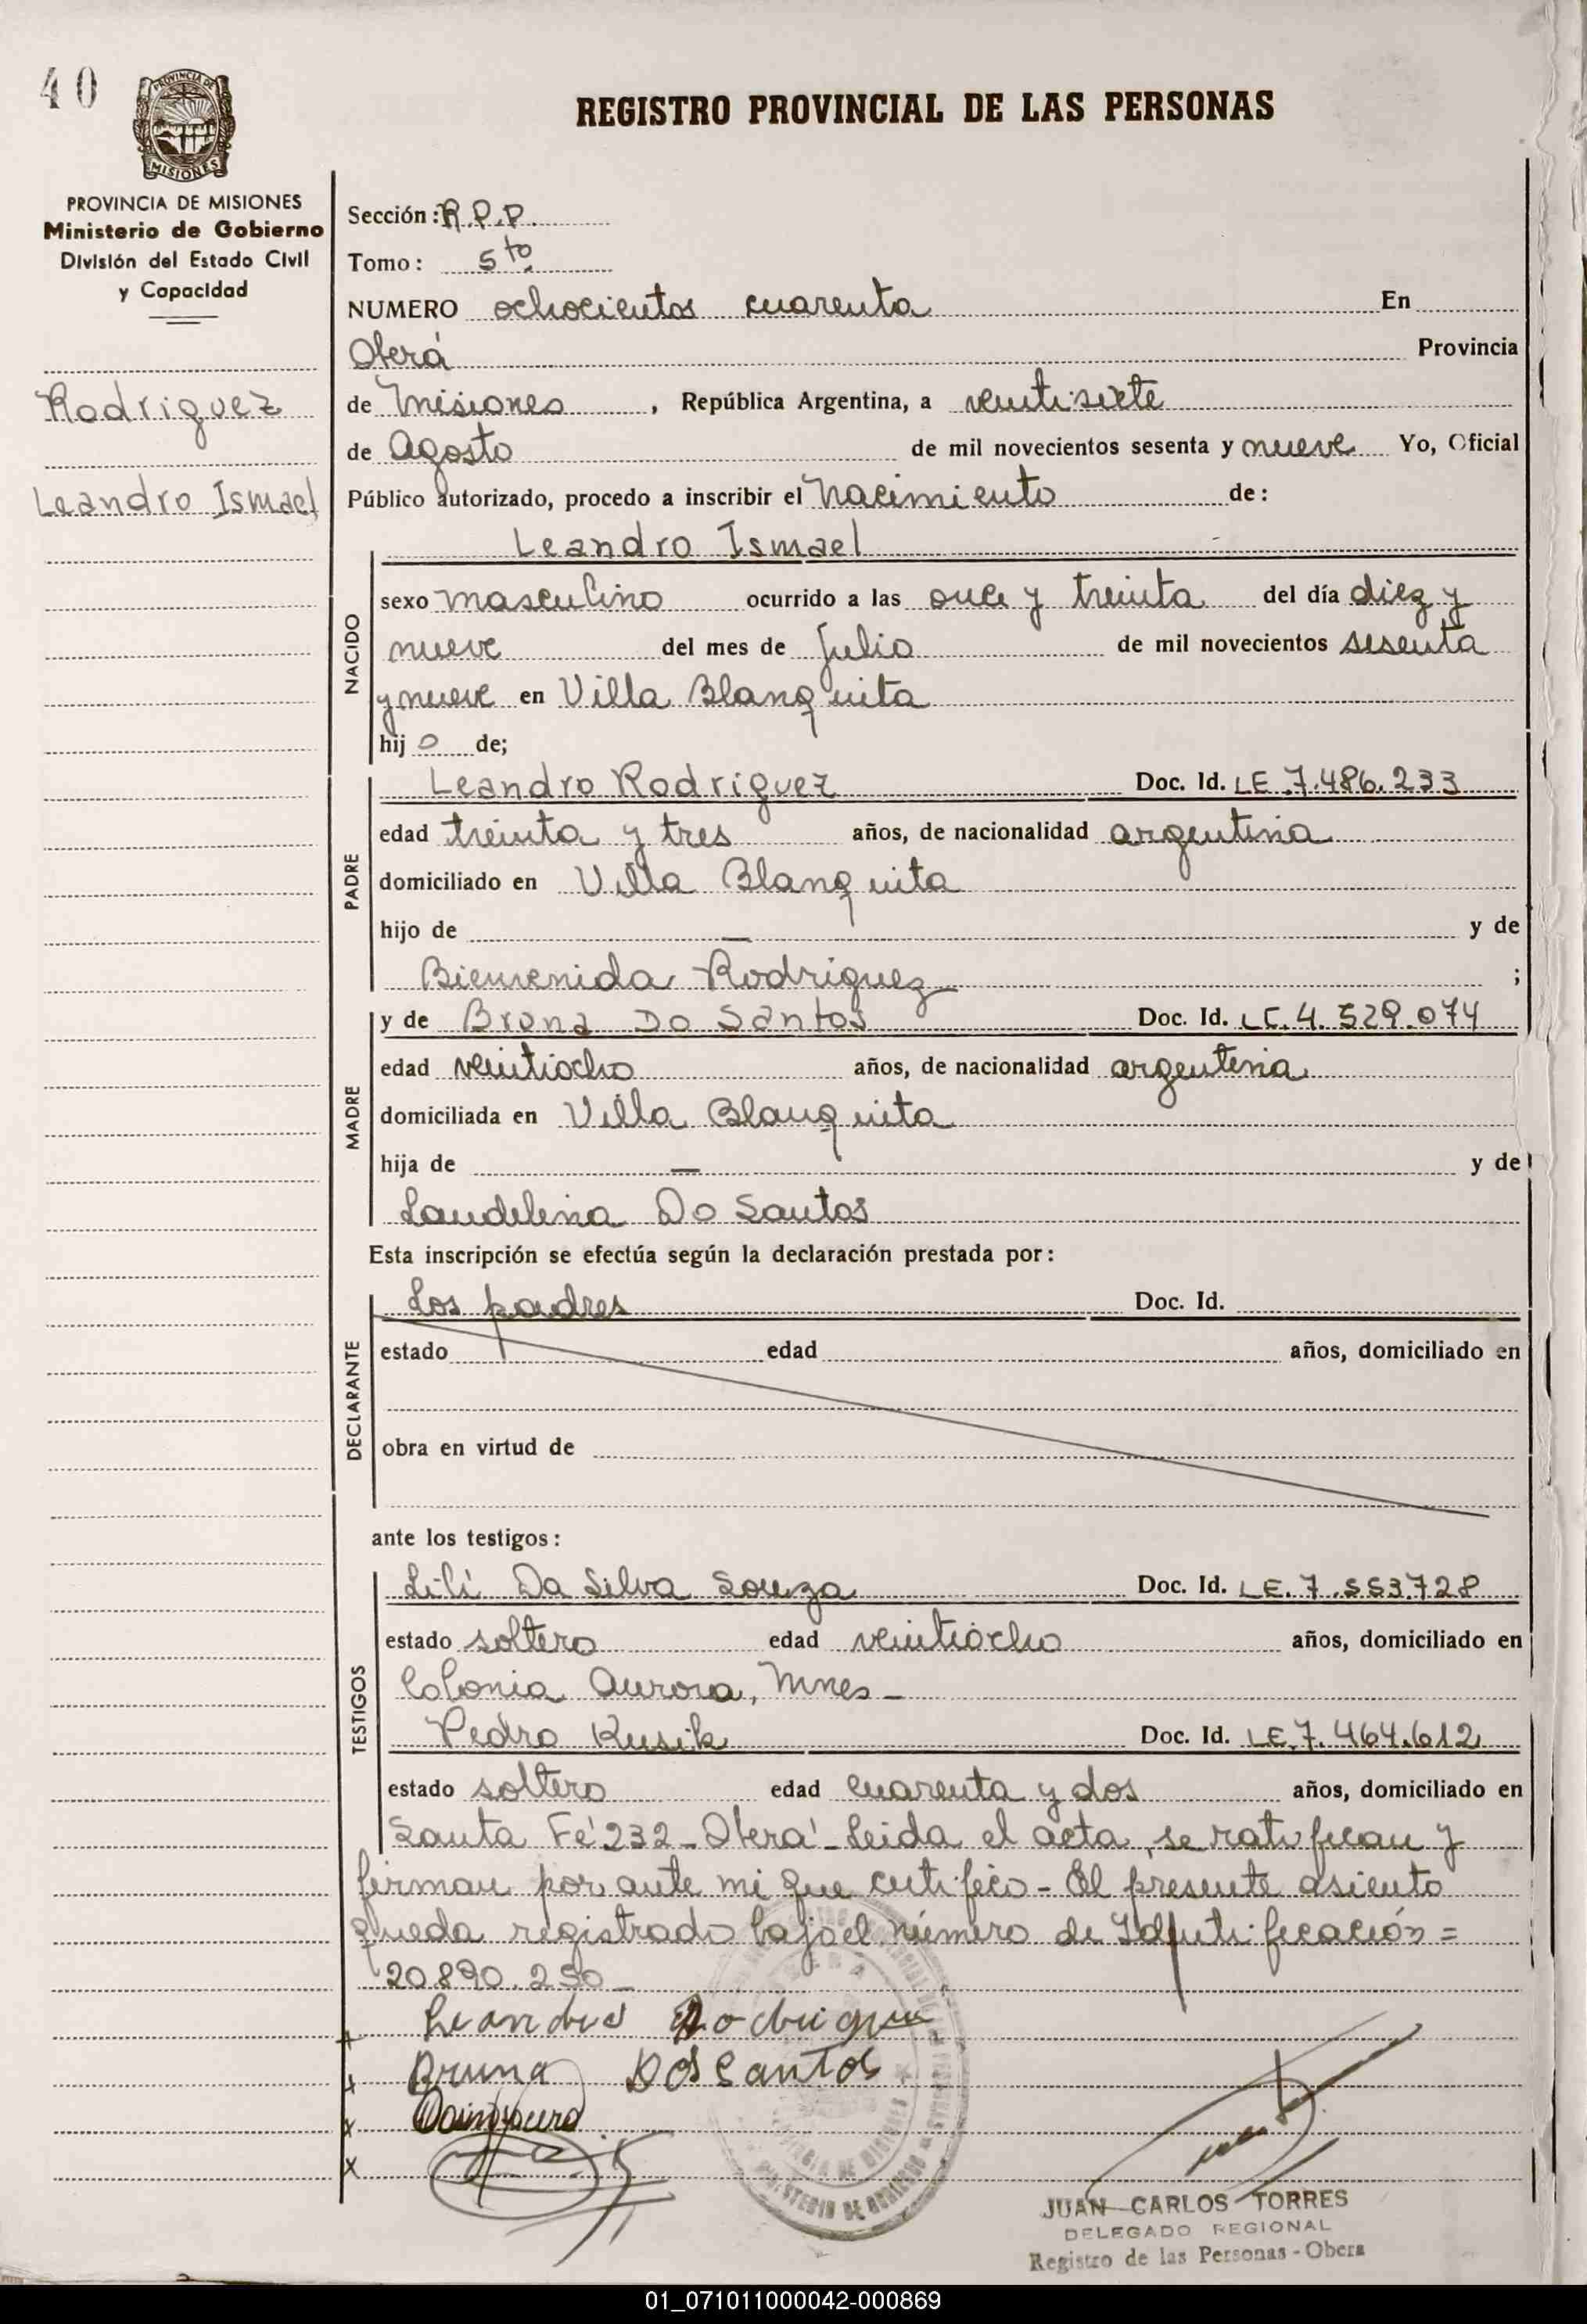 40
PROVINCIA DE
MISIONES
REGISTRO PROVINCIAL DE LAS PERSONAS
PROVINCIA DE MISIONES
Ministerio de Gobierno
División del Estado Civil
y Capacidad
Rodriguez
Leandro Ismael
Sección: R.P.P.
Tomo: 5to.
NUMERO ochocientos cuarenta En
Oberá Provincia
de Misiones, República Argentina, a veintisiete
de Agosto de mil novecientos sesenta y nueve Yo, Oficial
Público autorizado, procedo a inscribir el nacimiento de:
Leandro Ismael
NACIDO
sexo masculino ocurrido a las once y treinta del día diez y
nueve del mes de Julio de mil novecientos sesenta
y nueve en Villa Blanquita
hijo de;
PADRE
Leandro Rodriguez Doc. Id. LE.7.486.233
edad treinta y tres años, de nacionalidad argentina
domiciliado en Villa Blanquita
hijo de — y de
Bienvenida Rodriguez ;
MADRE
y de Bruna Do Santos Doc. Id. LC.4.529.074
edad veintiocho años, de nacionalidad argentina
domiciliada en Villa Blanquita
hija de — y de
Laudelina Do Santos
Esta inscripción se efectúa según la declaración prestada por:
DECLARANTE
Los padres Doc. Id.
estado edad años, domiciliado en
obra en virtud de
ante los testigos:
TESTIGOS
Lili Da Silva Souza Doc. Id. LE.7.553.728
estado soltero edad veintiocho años, domiciliado en
Colonia Aurora, Mnes-
Pedro Kusik Doc. Id. LE.7.464.612
estado soltero edad cuarenta y dos años, domiciliado en
Santa Fé 232 - Oberá - Leida el acta, se ratifican y
firman por ante mi que certifico - El presente asiento
queda registrado bajo el número de Identificación =
20.890.250-
x Leandro Rodrigue
x Bruna DOS Santos
x
x
JUAN CARLOS TORRES
DELEGADO REGIONAL
Registro de las Personas - Obera
01_071011000042-000869